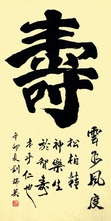 壽
雲水風度
松柏精
神樂生
於智壽
本乎仁也
辛卯夏劉